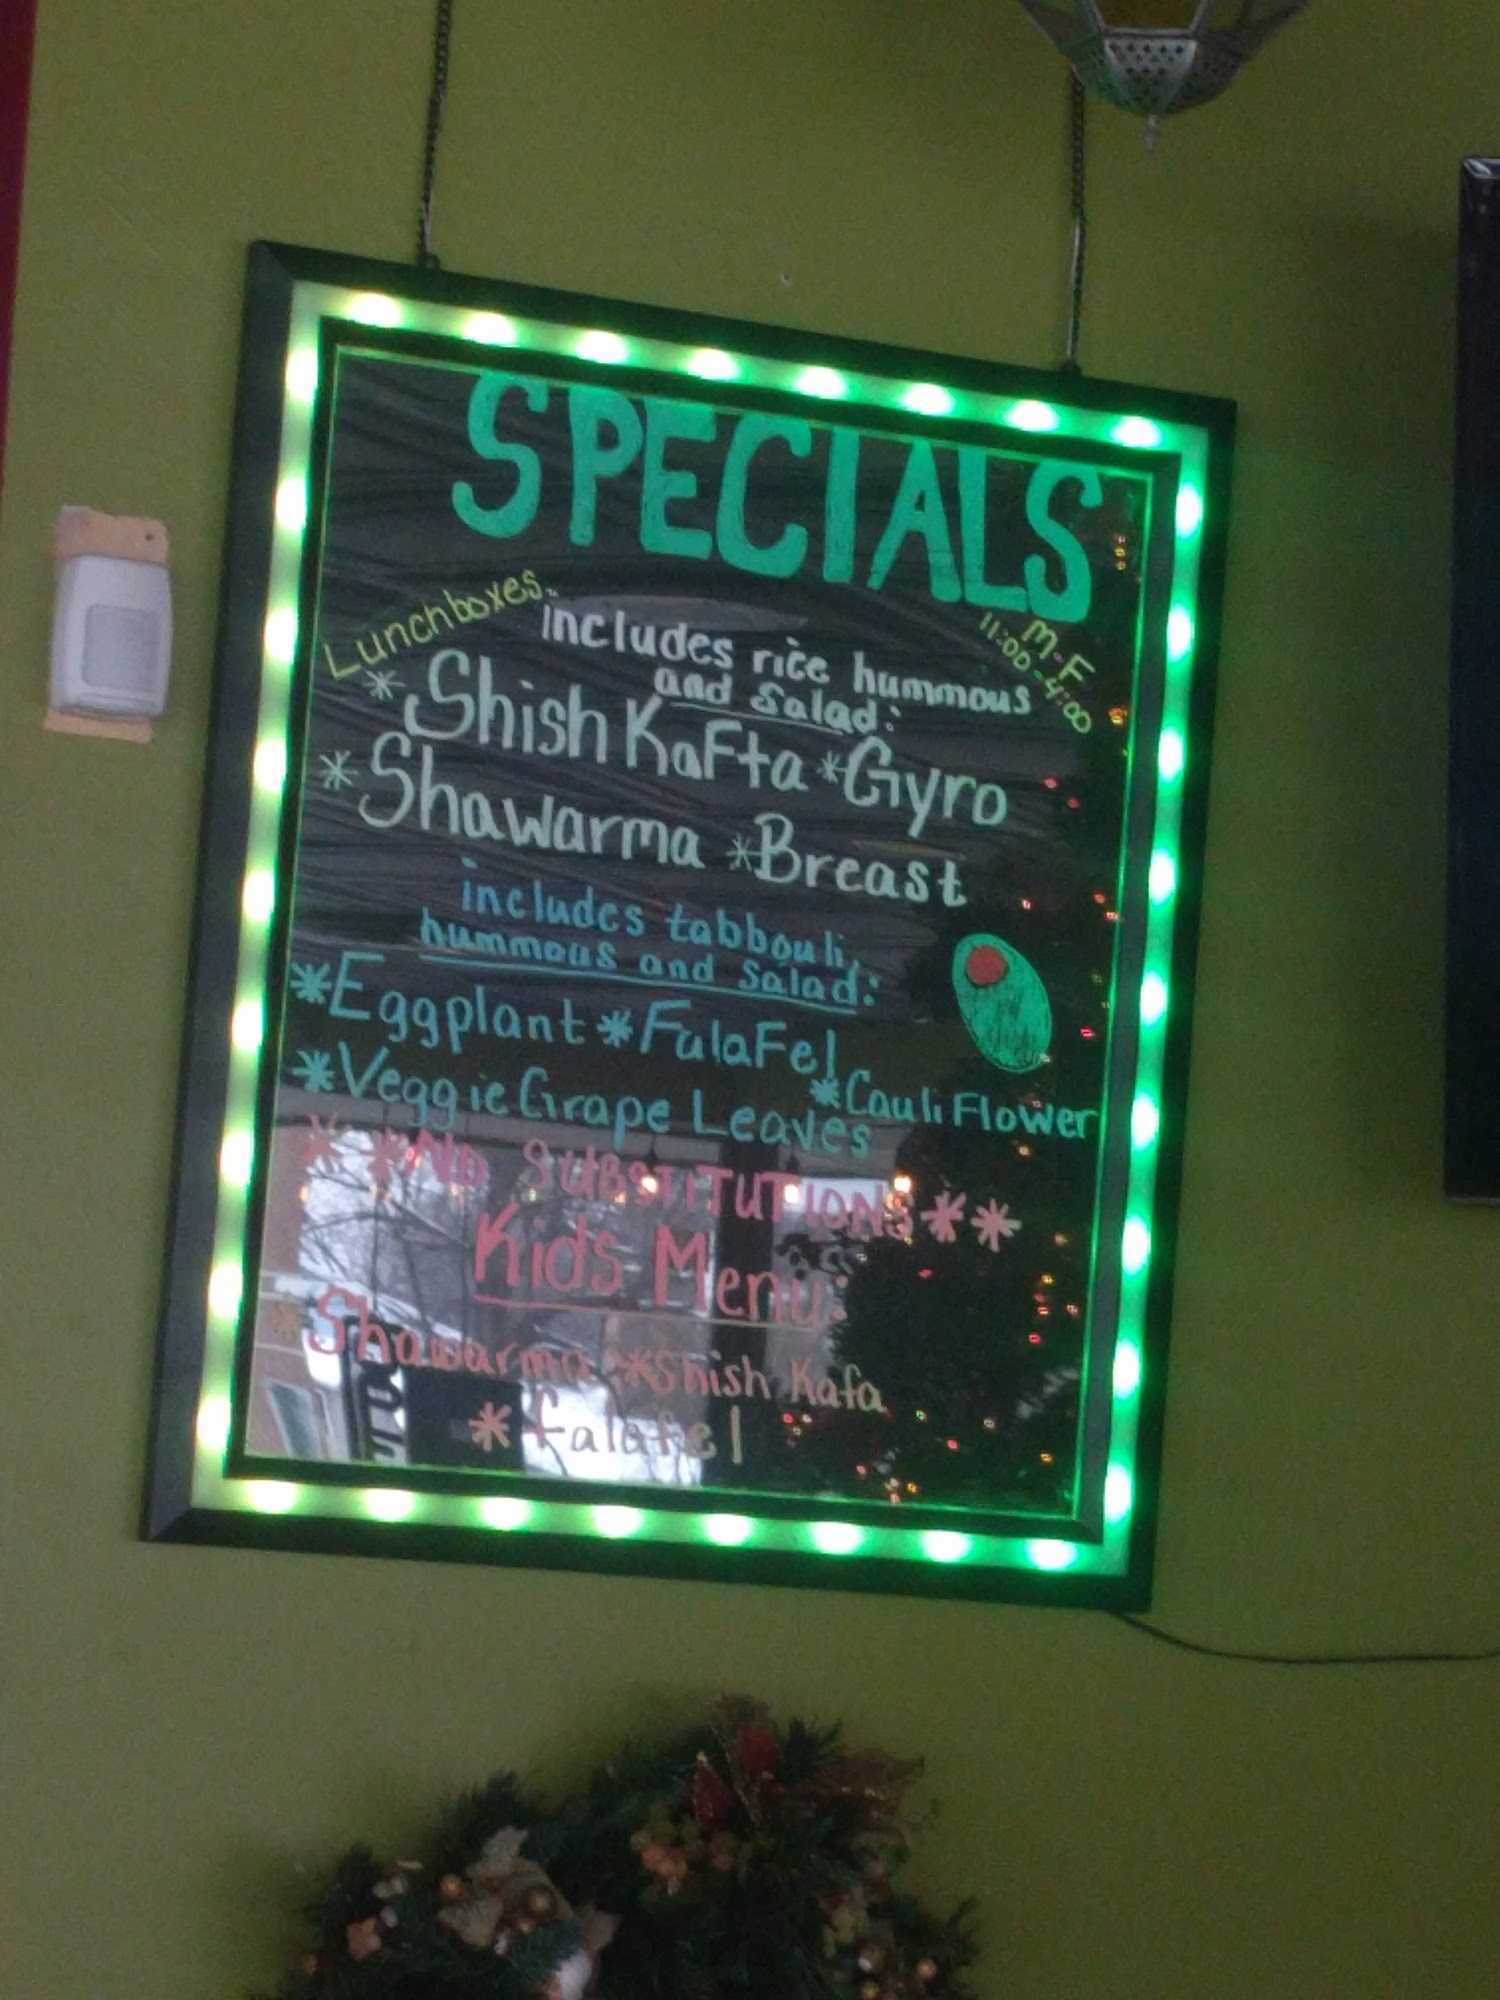 SPECIALS
Lunchboxes.
M-F
11:00-4:00
includes rice hummous
and salad:
*Shish KaFta *Gyro
*Shawarma *Breast
includes tabbouli,
hummous and salad:
*Eggplant *FalaFel
*Veggie Grape Leaves *CauliFlower
**NO SUBSTITUTIONS**
Kids Menu:
*Shawarma *Shish Kafa
*falafel